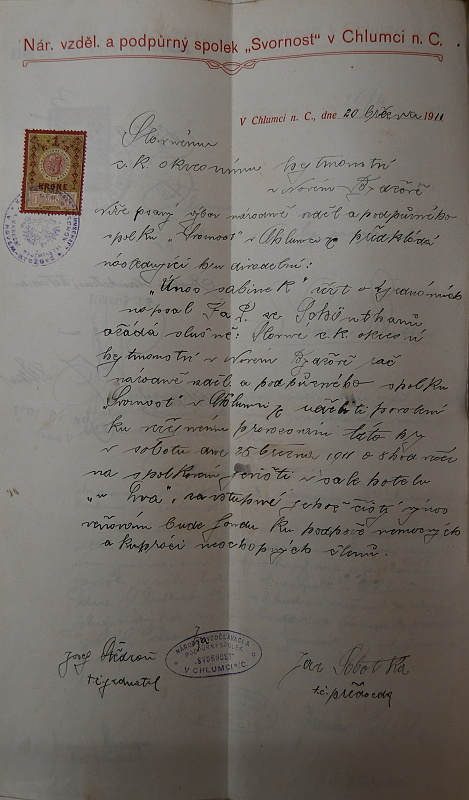 Nár. vzděl. a podpůrný spolek „Svornost" v Chlumci n. C.
V Chlumci n. C., dne 20 března 1911
Slavnému
c. k. okresnímu hejtmanství
v Novém Bydžově
KRONE
níže psaný výbor národně vzděl a podpůrného
spolku „Svornost" v Chlumci n/c předkládá
následující hru divadelní:
„Únos sabinek" o 4 jednáních
napsal F a P. ze
a žádá slušně: Slavné c. k. okresní
hejtmanství v Novém Bydžově rač
národně vzděl. a podpůrného spolku
„Svornost" v Chlumci n/c uděliti povolení
ku veřejnému provozování této hry
v sobotu dne 25 března 1911 o 8 hod več
na spolkovém jevišti v sále hotelu
„u lva", za vstupné jehož čistý výnos
věnován bude fondu ku podpoře nemocných
a ku práci neschopných členů.
Za
NÁRODNĚ VZDĚLÁVACÍ A
PODPŮRNÝ SPOLEK
„SVORNOST"
V CHLUMCI N/C.
Josef
jednatel
Jan Sobotka
t. č. předseda